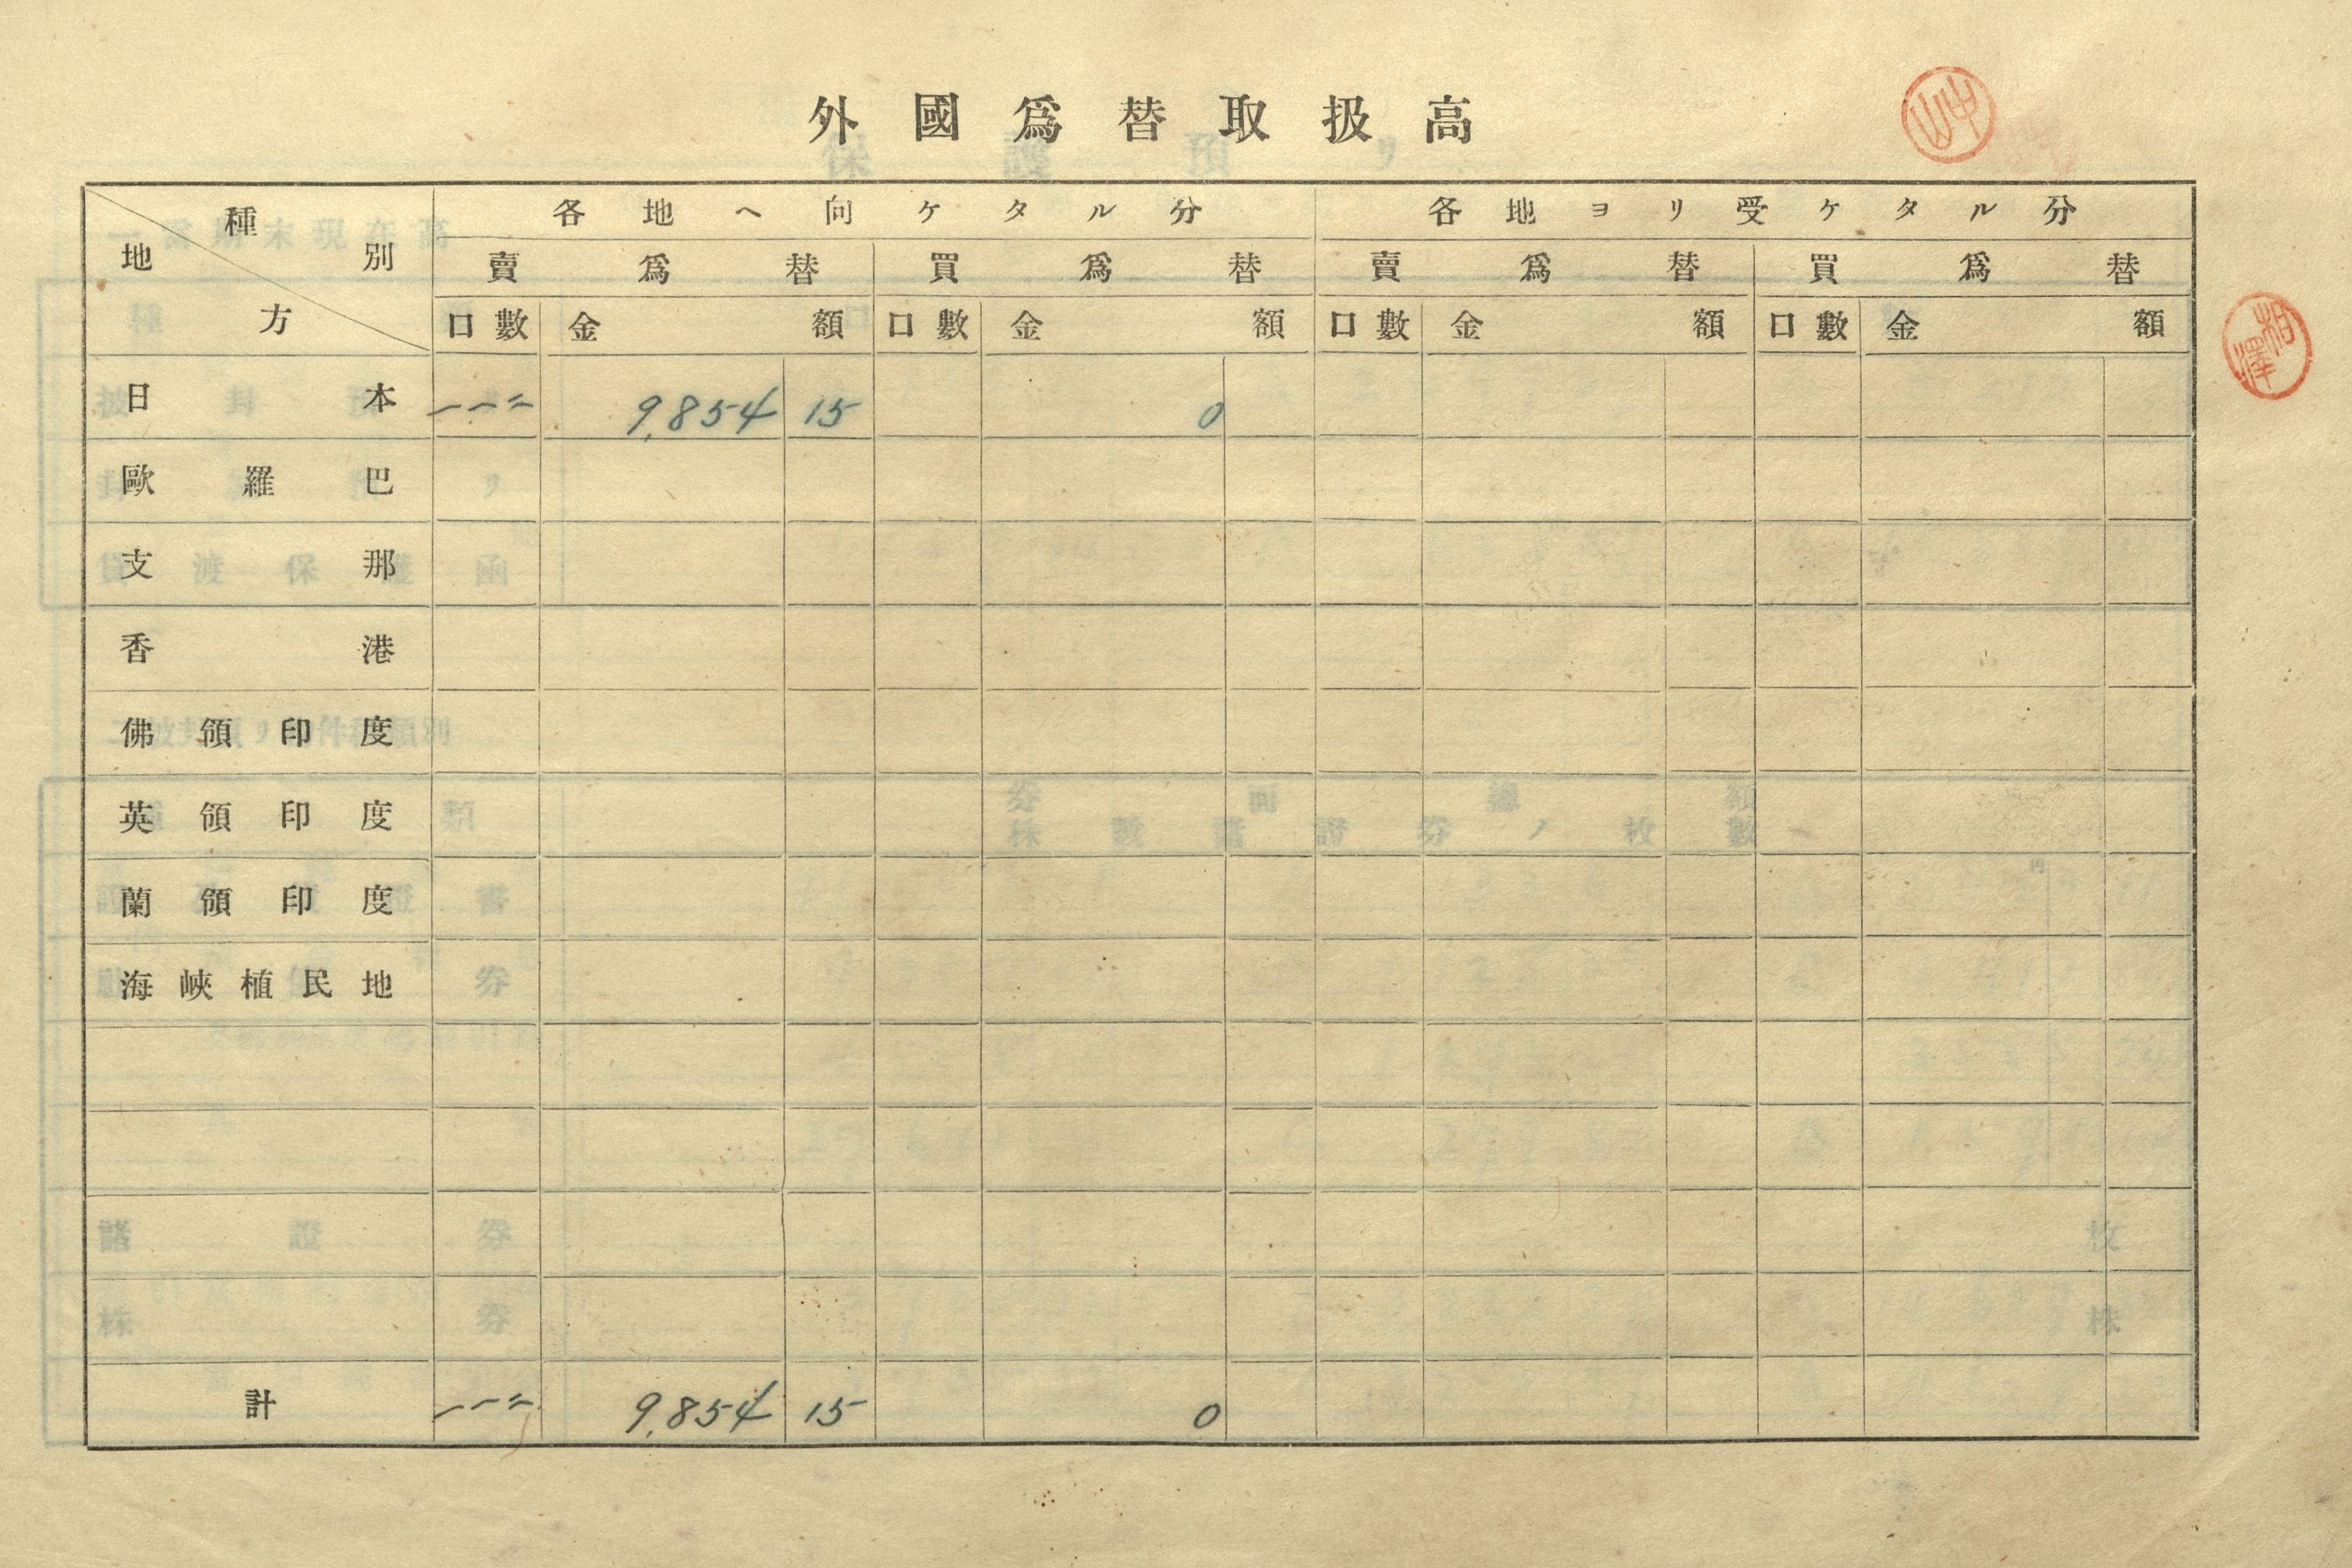 外國爲替取扱高
種別
地方
各地ヘ向ケタル分 各地ヨリ受ケタル分
賣爲替 買爲替 賣爲替 買爲替
口數 金額 口數 金額 口數 金額 口數 金額
日本 一一二 9,854 15 0
歐羅巴
支那
香港
佛領印度
英領印度
蘭領印度
海峽植民地
計 一一二 9,854 15 0